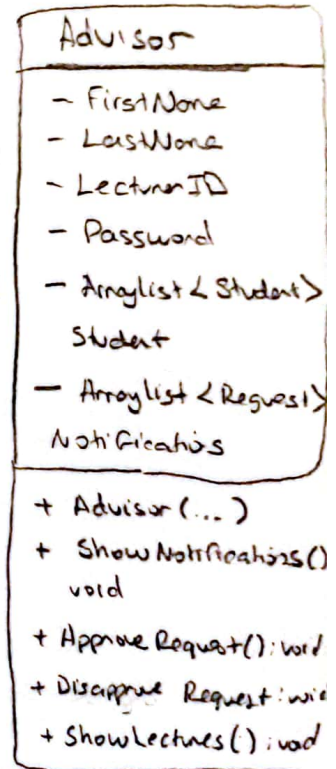 Advisor
- FirstName
- LastName
- LecturerID
- Password
- Arraylist<Student>
Student
- Arraylist<Request>
Notifications
+ Advisor(...)
+ ShowNotifications()
void
+ Approve Request(): void
+ Disapprove Request: void
+ ShowLectures(): void